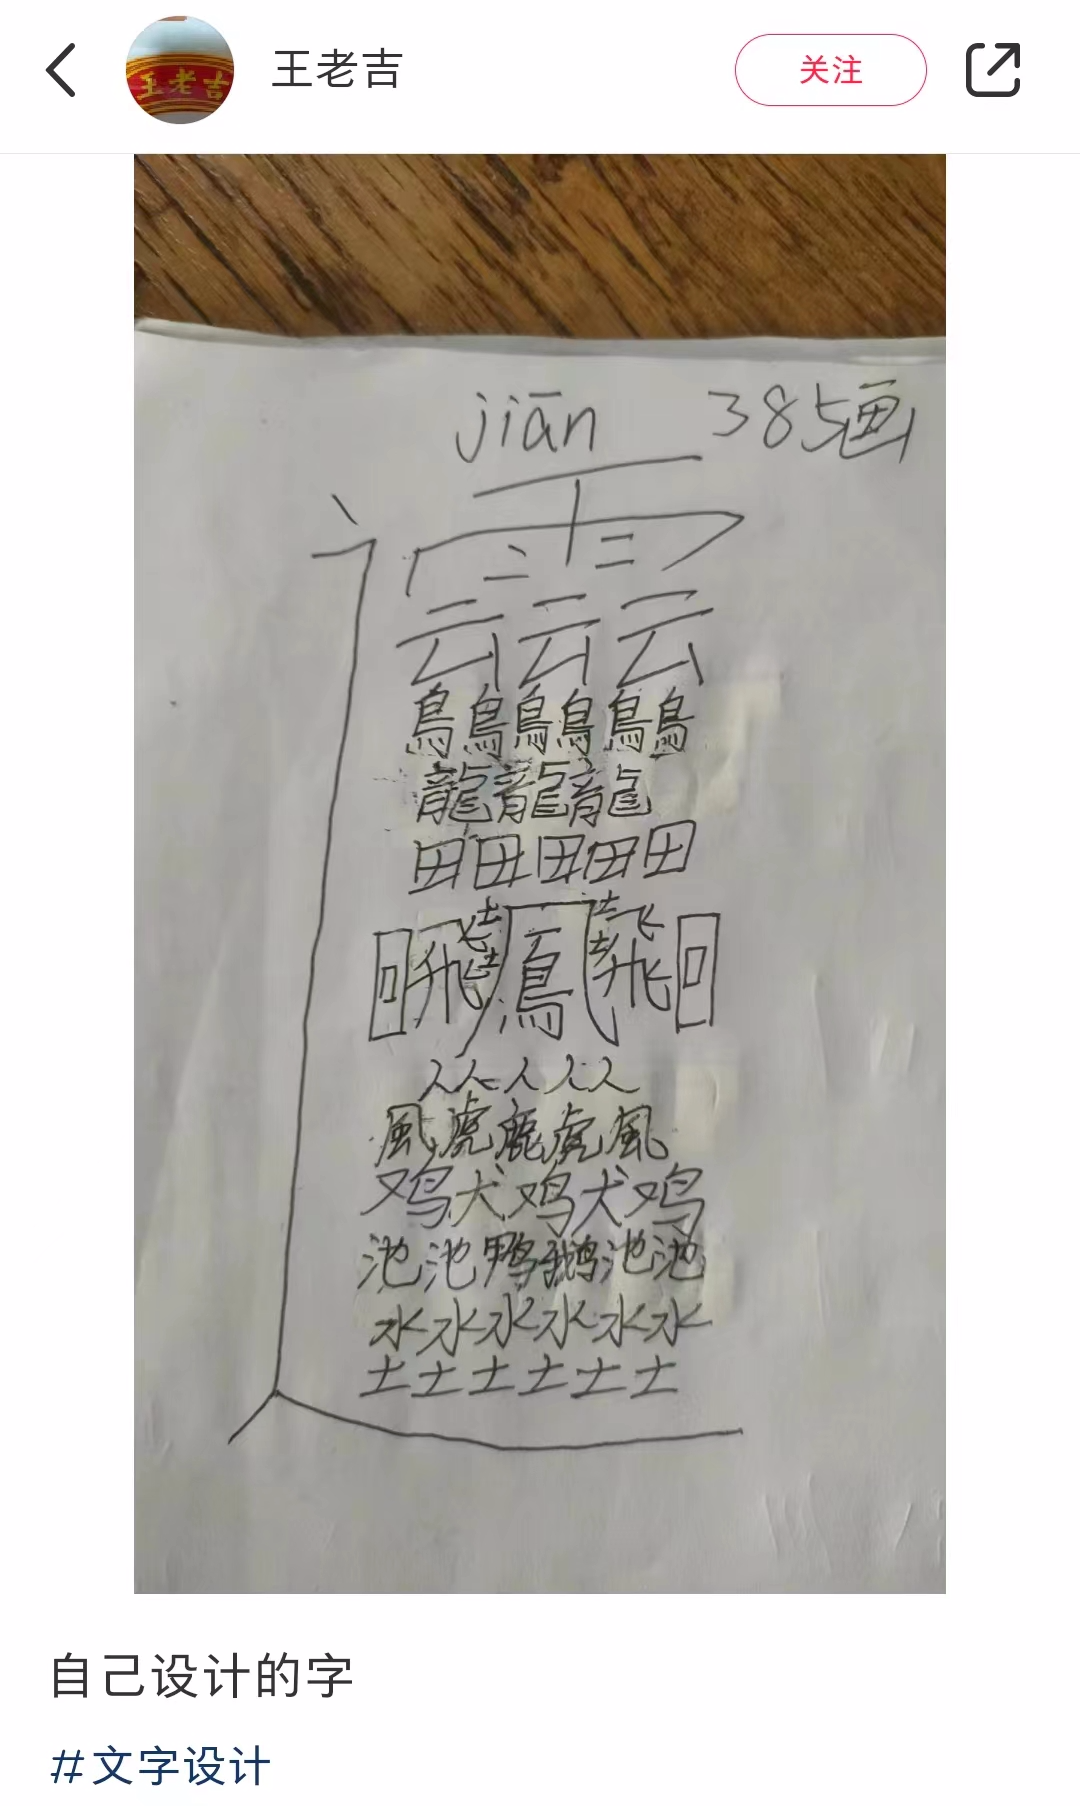 王老吉
王老吉
关注
jiān 385画
辶
雨
云云云
鳥鳥鳥鳥鳥鳥
龍龍龍
田田田田田
回飛鳳飛回
人人人人人
風虎鹿虎風
鸡犬鸡犬鸡
池池鸭鹅池池
水水水水水水
土土土土土土
自己设计的字
#文字设计